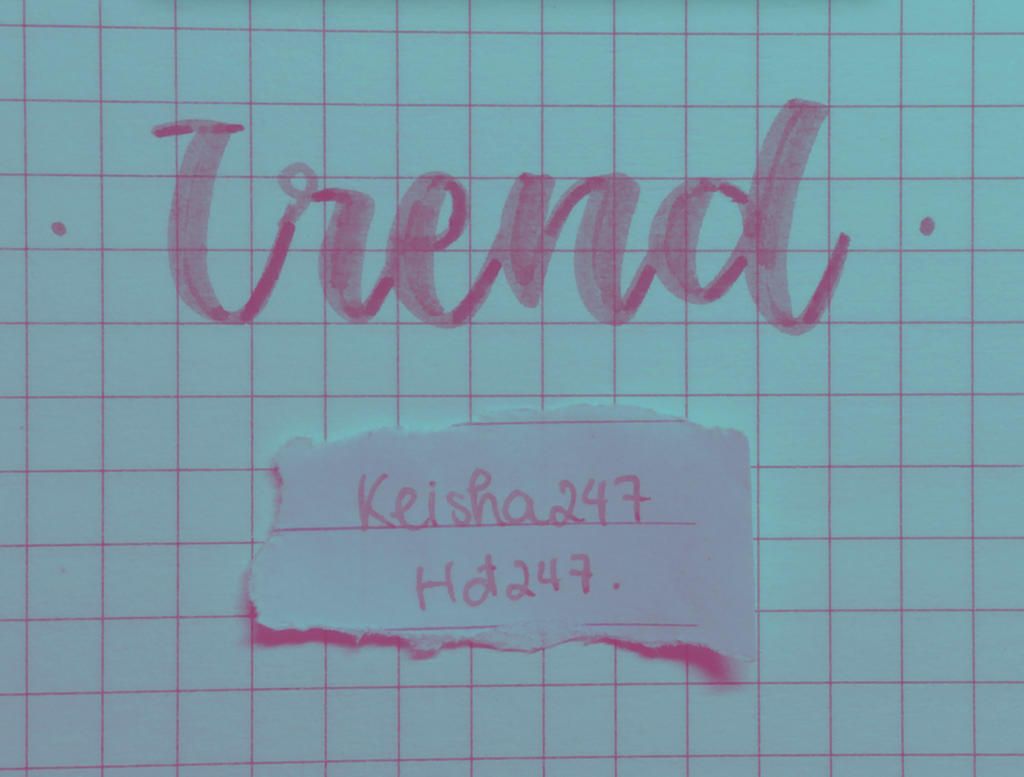 Trend
Keisha247
Hot247.